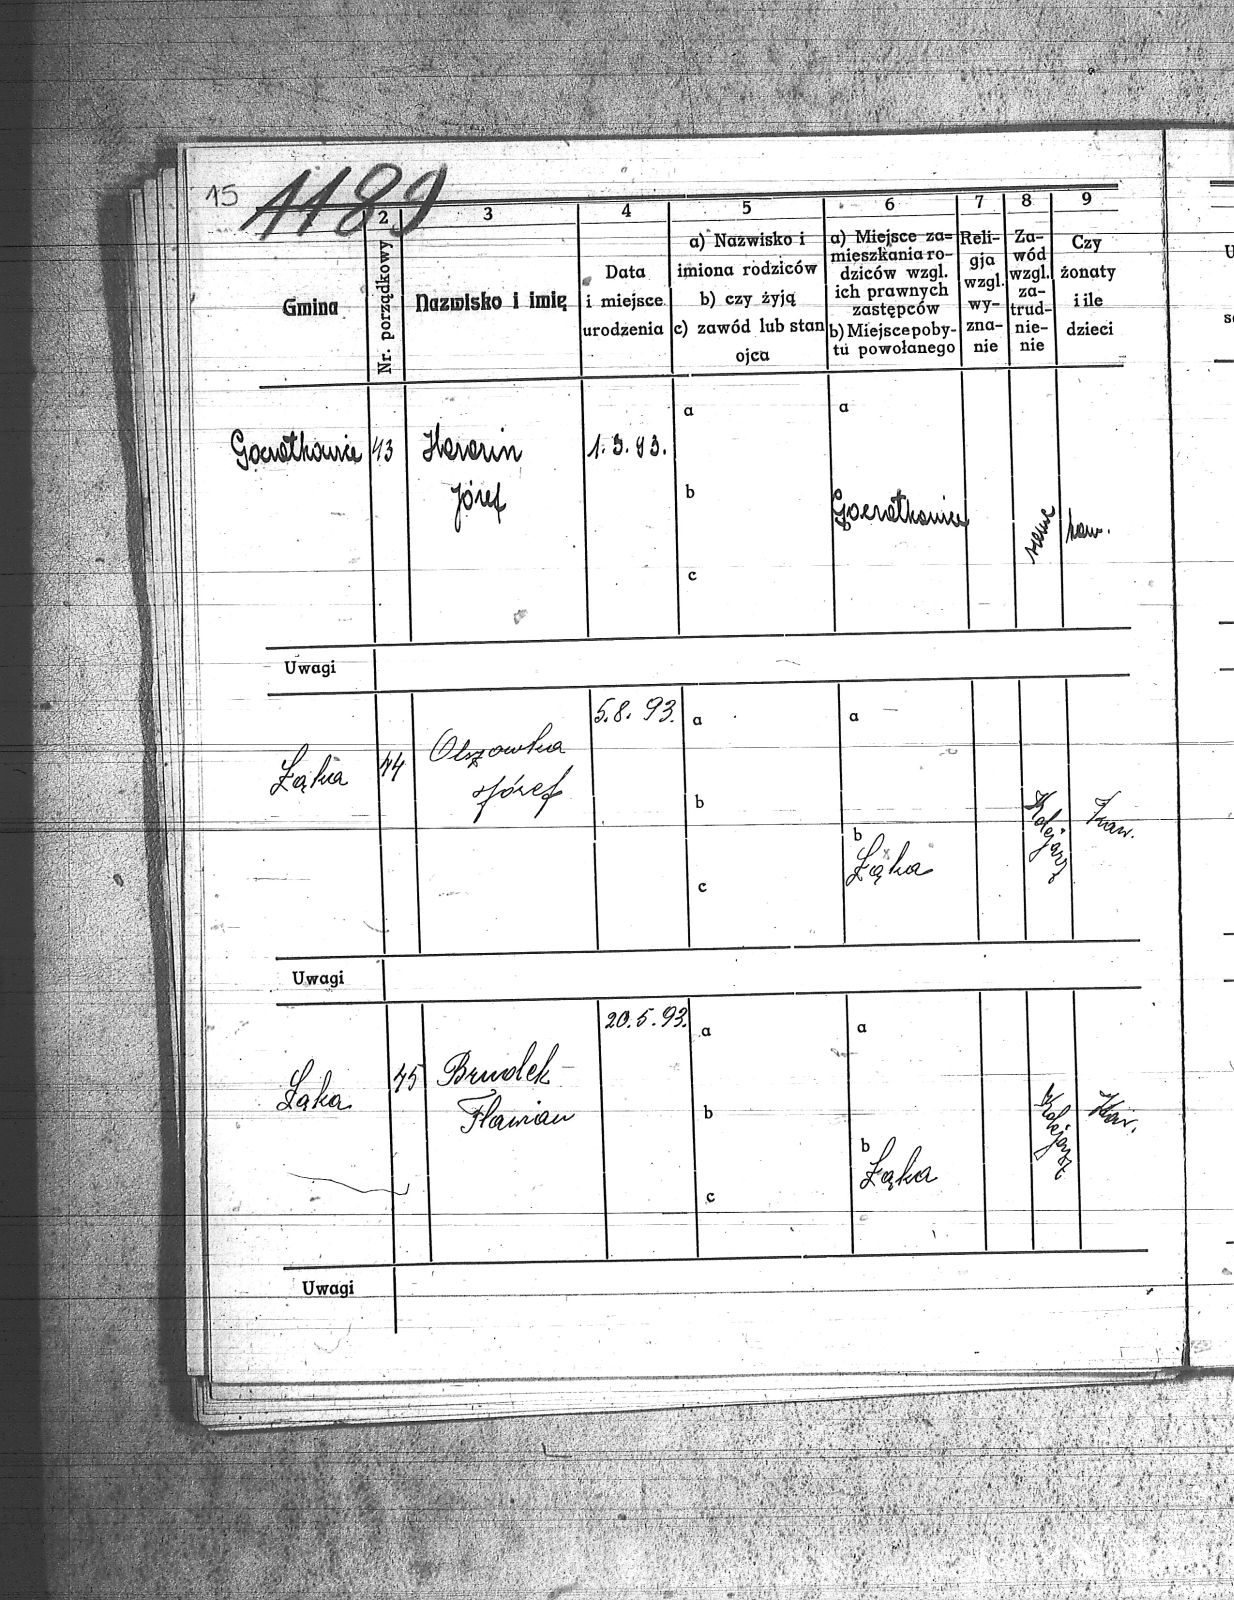 15
1189
2
3
4
5
6
7
8
9
Gmina
Nr. porządkowy
Nazwisko i imię
Data
i miejsce
urodzenia
a) Nazwisko i
imiona rodziców
b) czy żyją
c) zawód lub stan
ojca
a) Miejsce za=
mieszkania ro-
dziców wzgl.
ich prawnych
zastępców
b) Miejsce poby-
tu powołanego
Reli-
gja
wzgl.
wy-
zna-
nie
Za-
wód
wzgl.
za-
trud-
nie-
nie
Czy
żonaty
i ile
dzieci
Goczałkowice
43
Józef
1.3.93.
a
b
c
a
b
Goczałkowice
kaw.
Uwagi
Łąka
44
Olszowka
Józef
5.8.93.
a
b
c
a
b
Łąka
Kolejarz
Kaw.
Uwagi
Łąka
45
Brudek
Florian
20.5.93.
a
b
c
a
b
Łąka
Kolejarz
Kaw.
Uwagi